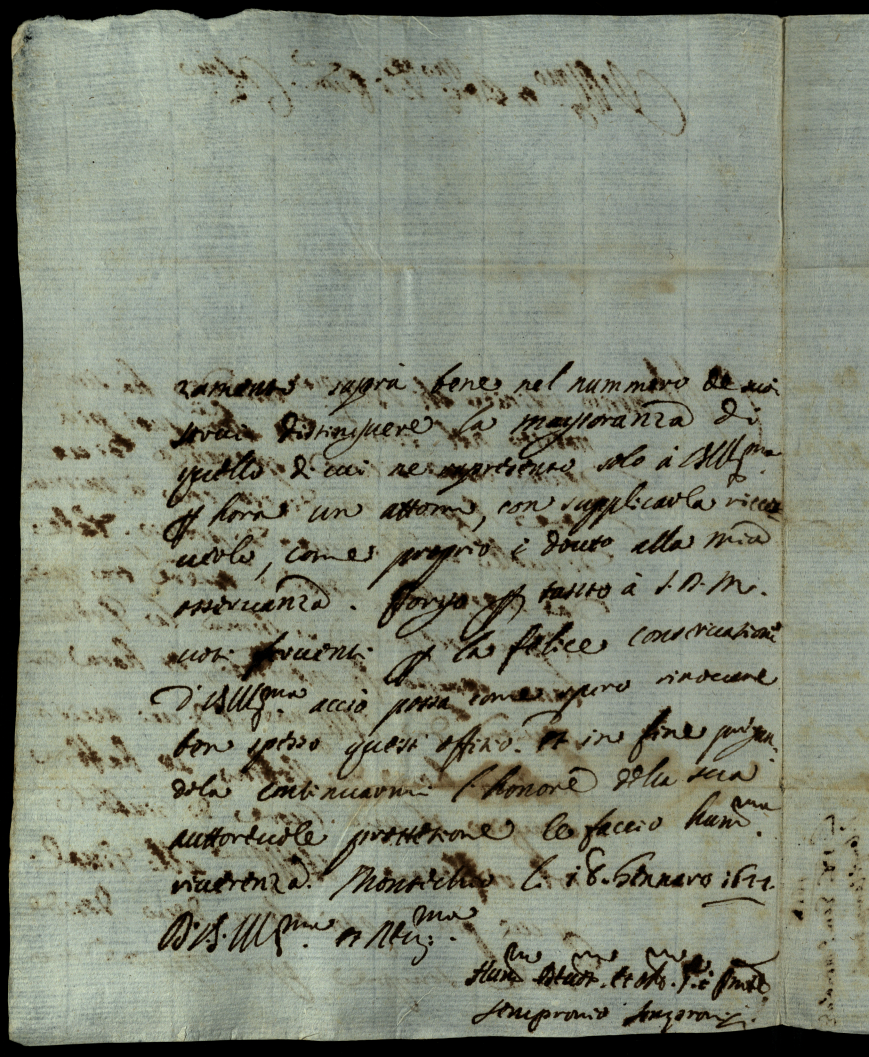 zamente saprà bene nel nummero de suoi
servi distinguere la maggioranza di
quello di cui ne rapresento solo à V.S. Ill.ma
p hora un attomo, con supplicarla ricev
uerlo, come proprio è douuto alla mia
osseruanza. Porgo p tanto à S. D. M.
uoti feruenti p la felice conseruatione
di V.S. Ill.ma acciò possa come spero rinouare
ben spesso questi offitio. et in fine pregan
dola continuarmi l'honore della sua
auttoreuole protettione le faccio hum.ma
riuerenza. Monticello li 18. Gennaro
Di V.S. Ill.ma et Reu.ma
Hum.mo Deuot.mo et obl.mo
Sempronio